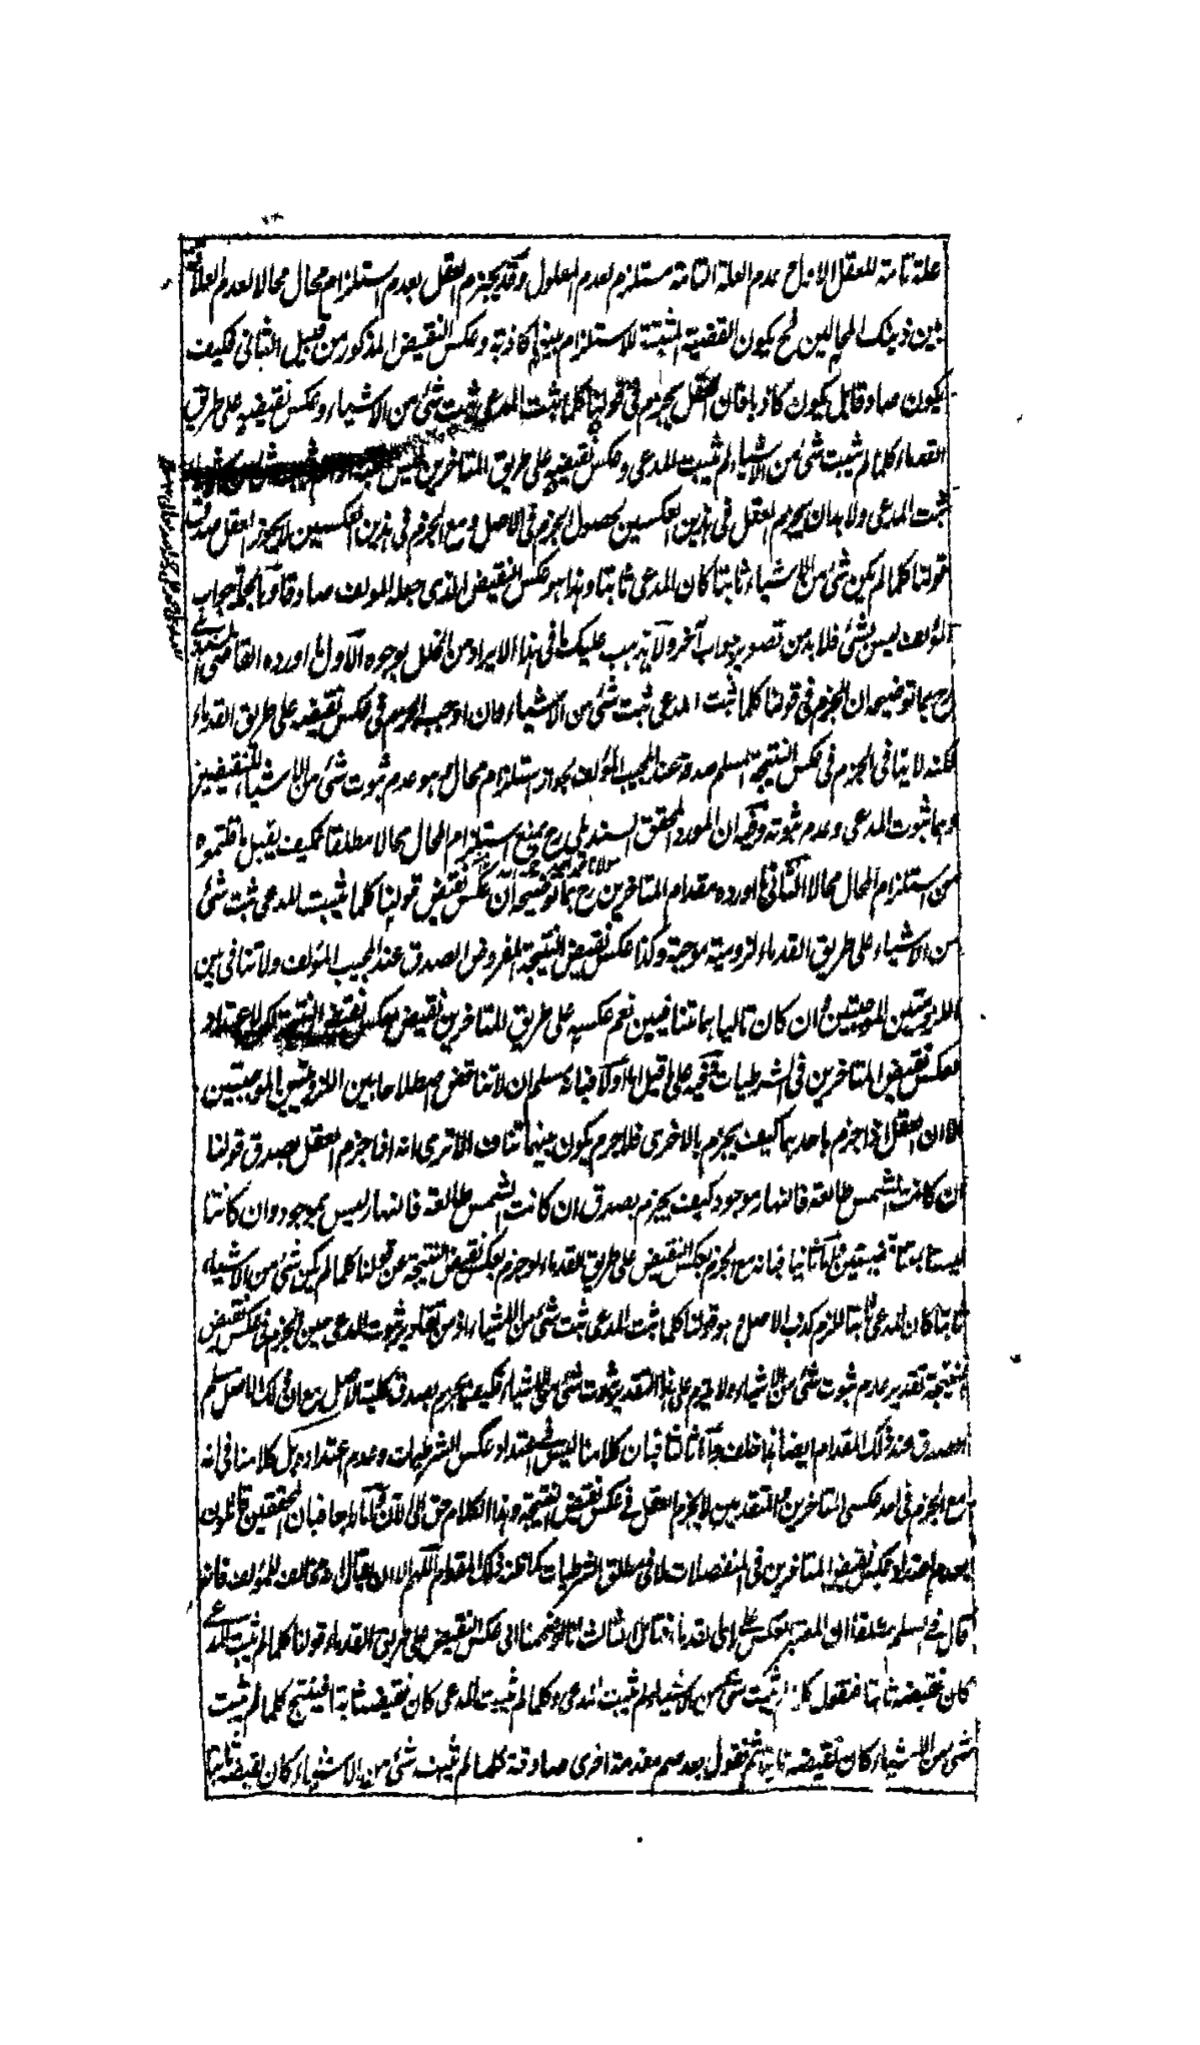 علة تامة للعقل الاول عدم العلة التامة مستلزم لعدم المعلول وقد يجزم العقل بعدم استلزام محال محالا لعدم العلاقة
بين ذينك المحالين فح يكون القضية المثبتة للاستلزام بينهما كاذبة وعكس النقيض المذكور من قبيل الثانى فكيف
يكون صادقا بل يكون كاذبا فان العقل يجزم فى قولنا كلما ثبت المدعى ثبت شئ من الاشياء وعكس نقيضه على طريق
القدماء كلما لم يثبت شئ من الاشياء لم يثبت المدعى وعكس نقيضه على طريق المتأخرين ليس
ثبت المدعى ولابد ان يجزم العقل فى هذين العكسين لحصول الجزم فى الاصل ومع الجزم فى هذين العكسين لا يجوز العقل صدق
قولنا كلما لم يكن شئ من الاشياء ثابتا كان المدعى ثابتا وهذا هو عكس النقيض الذى جعله المولف صادقا وبالجملة جواب
المؤلف ليس بشئ فلا بد من تصوير جواب آخر ولا يذهب عليك ما فى هذا الايراد من الخلل بوجوه الاول ما اورده القاضى السنديلى
رح بما توضيحه ان الجزم فى قولنا كلما ثبت المدعى ثبت شئ من الاشياء وان اوجب الجزم فى عكس نقيضه على طريق القدماء
لكنه لا ينافى الجزم فى عكس النتيجة المسلم صدقه عند المجيب المؤلف بجواز استلزام محال وهو عدم ثبوت شئ من الاشياء للنقيضين
وهما ثبوت المدعى وعدم ثبوته وفيه ان المورد المحقق السنديلى رح يمنع استلزام المحال محالا مطلقا فكيف يقبل ما قلتموه
من استلزام المحال محالا الثانى ما اورده مقدام المتاخرين رح بما توضيحه ان عكس نقيض قولنا كلما ثبت المدعى ثبت شئ
من الاشياء على طريق القدماء لزومية موجبة وكذا عكس نقيض النتيجة المفروض الصدق عند المجيب المؤلف ولا تنافى بين
اللزوميتين الموجبتين وان كان تالياهما متنافيين نعم عكسه على طريق المتاخرين نقيض لعكس نقيض النتيجة لكن لا اعتداد
بعكس نقيض المتاخرين فى الشرطيات ففيه على ما قيل اما اولا فبانه سلم ان لا تناقض اصطلاحا بين اللزوميتين الموجبتين
الا ان العقل اذا جزم باحدهما كيف يجزم بالاخرى فلا جرم يكون بينهما تناف الا ترى انه اذا جزم العقل بصدق قولنا
ان كانت الشمس طالعة فالنهار موجود كيف يجزم بصدق ان كانت الشمس طالعة فالنهار ليس بموجود وان كانتا
موجبتين واما ثانيا فبانه مع الجزم بعكس النقيض على طريق القدماء لو جزم بعكس نقيض النتيجة من قولنا كلما لم يكن شئ من الاشياء
ثابتا كان المدعى ثابتا للزم كذب الاصل وهو قولنا كلما ثبت المدعى ثبت شئ من الاشياء اذ من تقادير ثبوت المدعى حين الجزم فى عكس نقيض
النتيجة تقدير عدم ثبوت شئ من الاشياء ولا يلزم على هذا التقدير ثبوت شئ من الاشياء فكيف يجزم بصدق كلية الاصل مع ان ذلك الاصل مسلم
الصدق عند ذلك المقدام ايضا هذا خلف واما ثالثا فبان كلامنا ليس فى اعتداد عكس الشرطيات وعدم اعتداده بل كلامنا فى انه
مع الجزم فى احد عكسى المتاخرين والمتقدمين لا يجزم العقل فى عكس نقيض النتيجة وهذا الكلام حق الى الآن واما رابعا فبان المحققين قائلون
بعدم اعتداد عكس نقيض المتاخرين فى المنفصلات لا فى مطلق الشرطيات كما ظنه ذلك المقدام اللهم الا ان يقال انه مخالف للمؤلف فانه
قال فى السلم مطلقا ان المعتبر فى العكس على راى القدماء فتأمل الثالث انا لو ضممنا الى عكس النقيض على طريق القدماء قولنا كلما لم يثبت المدعى
كان نقيضه ثابتا فنقول كلما لم يثبت شئ من الاشياء لم يثبت المدعى وكلما لم يثبت المدعى كان نقيضه ثابتا فينتج كلما لم يثبت
شئ من الاشياء كان نقيضه ثابتا ثم نقول بعد ضم مقدمة اخرى صادقة كلما لم يثبت شئ من الاشياء كان نقيضه ثابتا